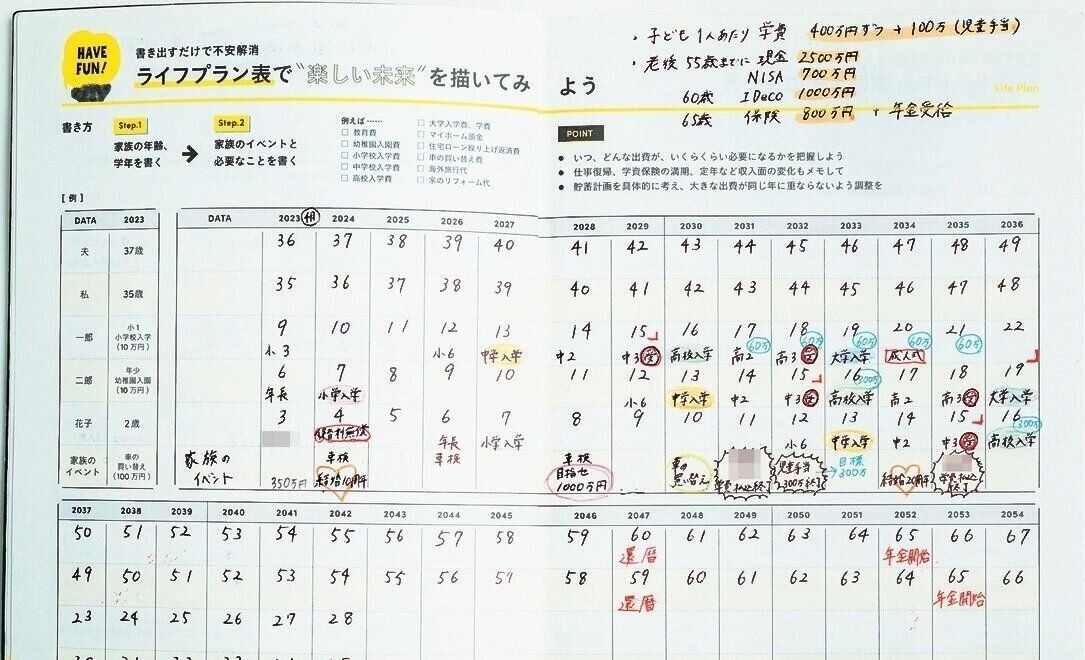 HAVE
FUN!
書き出すだけで不安解消
ライフプラン表で"楽しい未来"を描いてみよう
・子ども1人あたり 学費 400万円ずつ + 100万(児童手当)
・老後 55歳までに 現金 2500万円
NISA 700万円
60歳 IDeco 1000万円
65歳 保険 800万円 + 年金受給
Life Plan
書き方
Step.1
家族の年齢、
学年を書く
Step.2
家族のイベントと
必要なことを書く
例えば……
□ 教育費
□ 幼稚園入園費
□ 小学校入学費
□ 中学校入学費
□ 高校入学費
□ 大学入学費、学費
□ マイホーム頭金
□ 住宅ローン繰り上げ返済費
□ 車の買い替え費
□ 海外旅行代
□ 家のリフォーム代
POINT
● いつ、どんな出費が、いくらくらい必要になるかを把握しよう
● 仕事復帰、学資保険の満期、定年など収入面の変化もメモして
● 貯蓄計画を具体的に考え、大きな出費が同じ年に重ならないよう調整を
[例]
DATA 2023
夫 37歳
私 35歳
一郎 小1 小学校入学 (10万円)
二郎 年少 幼稚園入園 (10万円)
花子 2歳
家族のイベント 車の買い替え (100万円)
DATA 2023 2024 2025 2026 2027 2028 2029 2030 2031 2032 2033 2034 2035 2036
36 37 38 39 40 41 42 43 44 45 46 47 48 49
35 36 37 38 39 40 41 42 43 44 45 46 47 48
9 10 11 12 13 14 15 16 17 18 19 20 21 22
60万 60万 60万 60万
小3 小6 中学入学 中2 中3受 高校入学 高2 高3受 大学入学 成人式
6 7 8 9 10 11 12 13 14 15 16 17 18 19
300万
年長 小学入学 小6 中学入学 中2 中3受 高校入学 高2 高3受 大学入学
3 4 5 6 7 8 9 10 11 12 13 14 15 16
300万
保育料無償 年長 小学入学 小6 中学入学 中2 中3受 高校入学
家族のイベント
350万円
車検
結婚10周年
車検
車検
目指せ
1000万円
車の
買い替え
学資払込終了
児童手当
300万終了
→目標
300万
結婚20周年
学資払込
終了
2037 2038 2039 2040 2041 2042 2043 2044 2045 2046 2047 2048 2049 2050 2051 2052 2053 2054
50 51 52 53 54 55 56 57 58 59 60 61 62 63 64 65 66 67
還暦 年金開始
49 50 51 52 53 54 55 56 57 58 59 60 61 62 63 64 65 66
還暦 年金開始
23 24 25 26 27 28